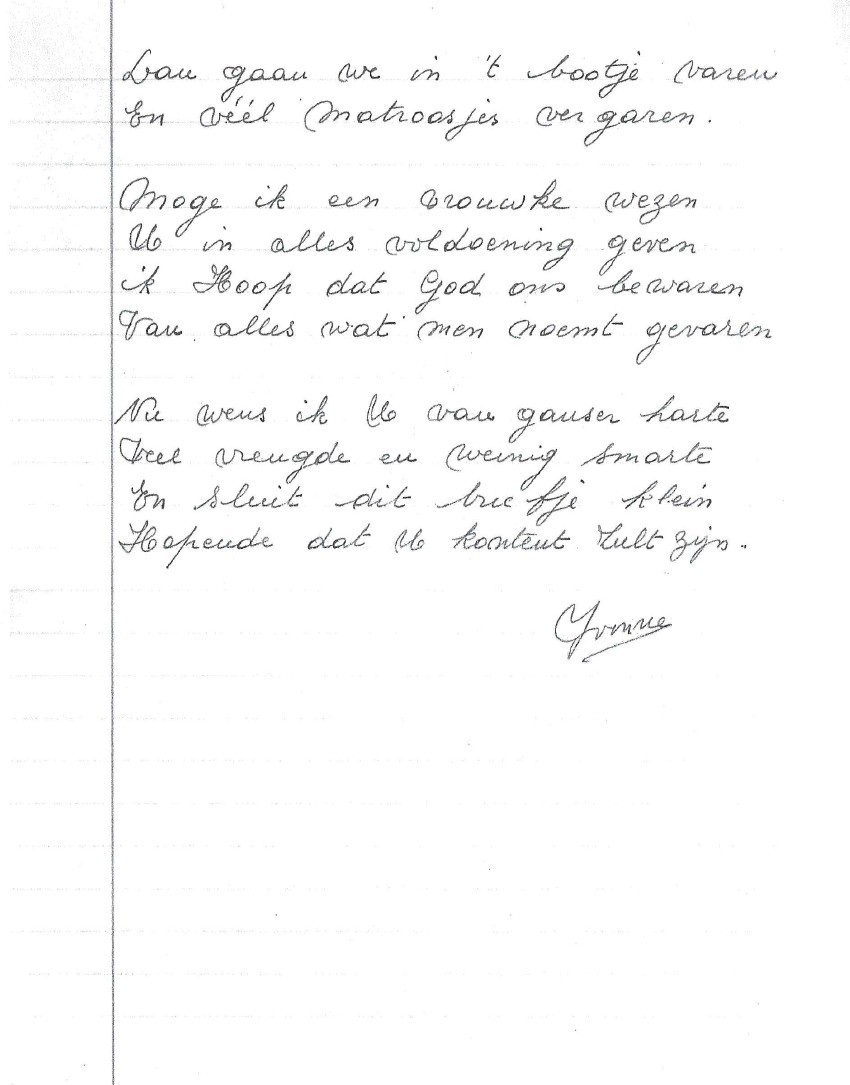 Dan gaan we in 't bootje varen
En véél matroosjes vergaren.
Moge ik een vrouwke wezen
U in alles voldoening geven
ik Hoop dat God ons bewaren
Van alles wat men noemt gevaren
Nu wens ik U van ganser harte
Veel vreugde en weinig smarte
En sluit dit briefje klein
Hopende dat U kontent zult zijn.
Yvonne